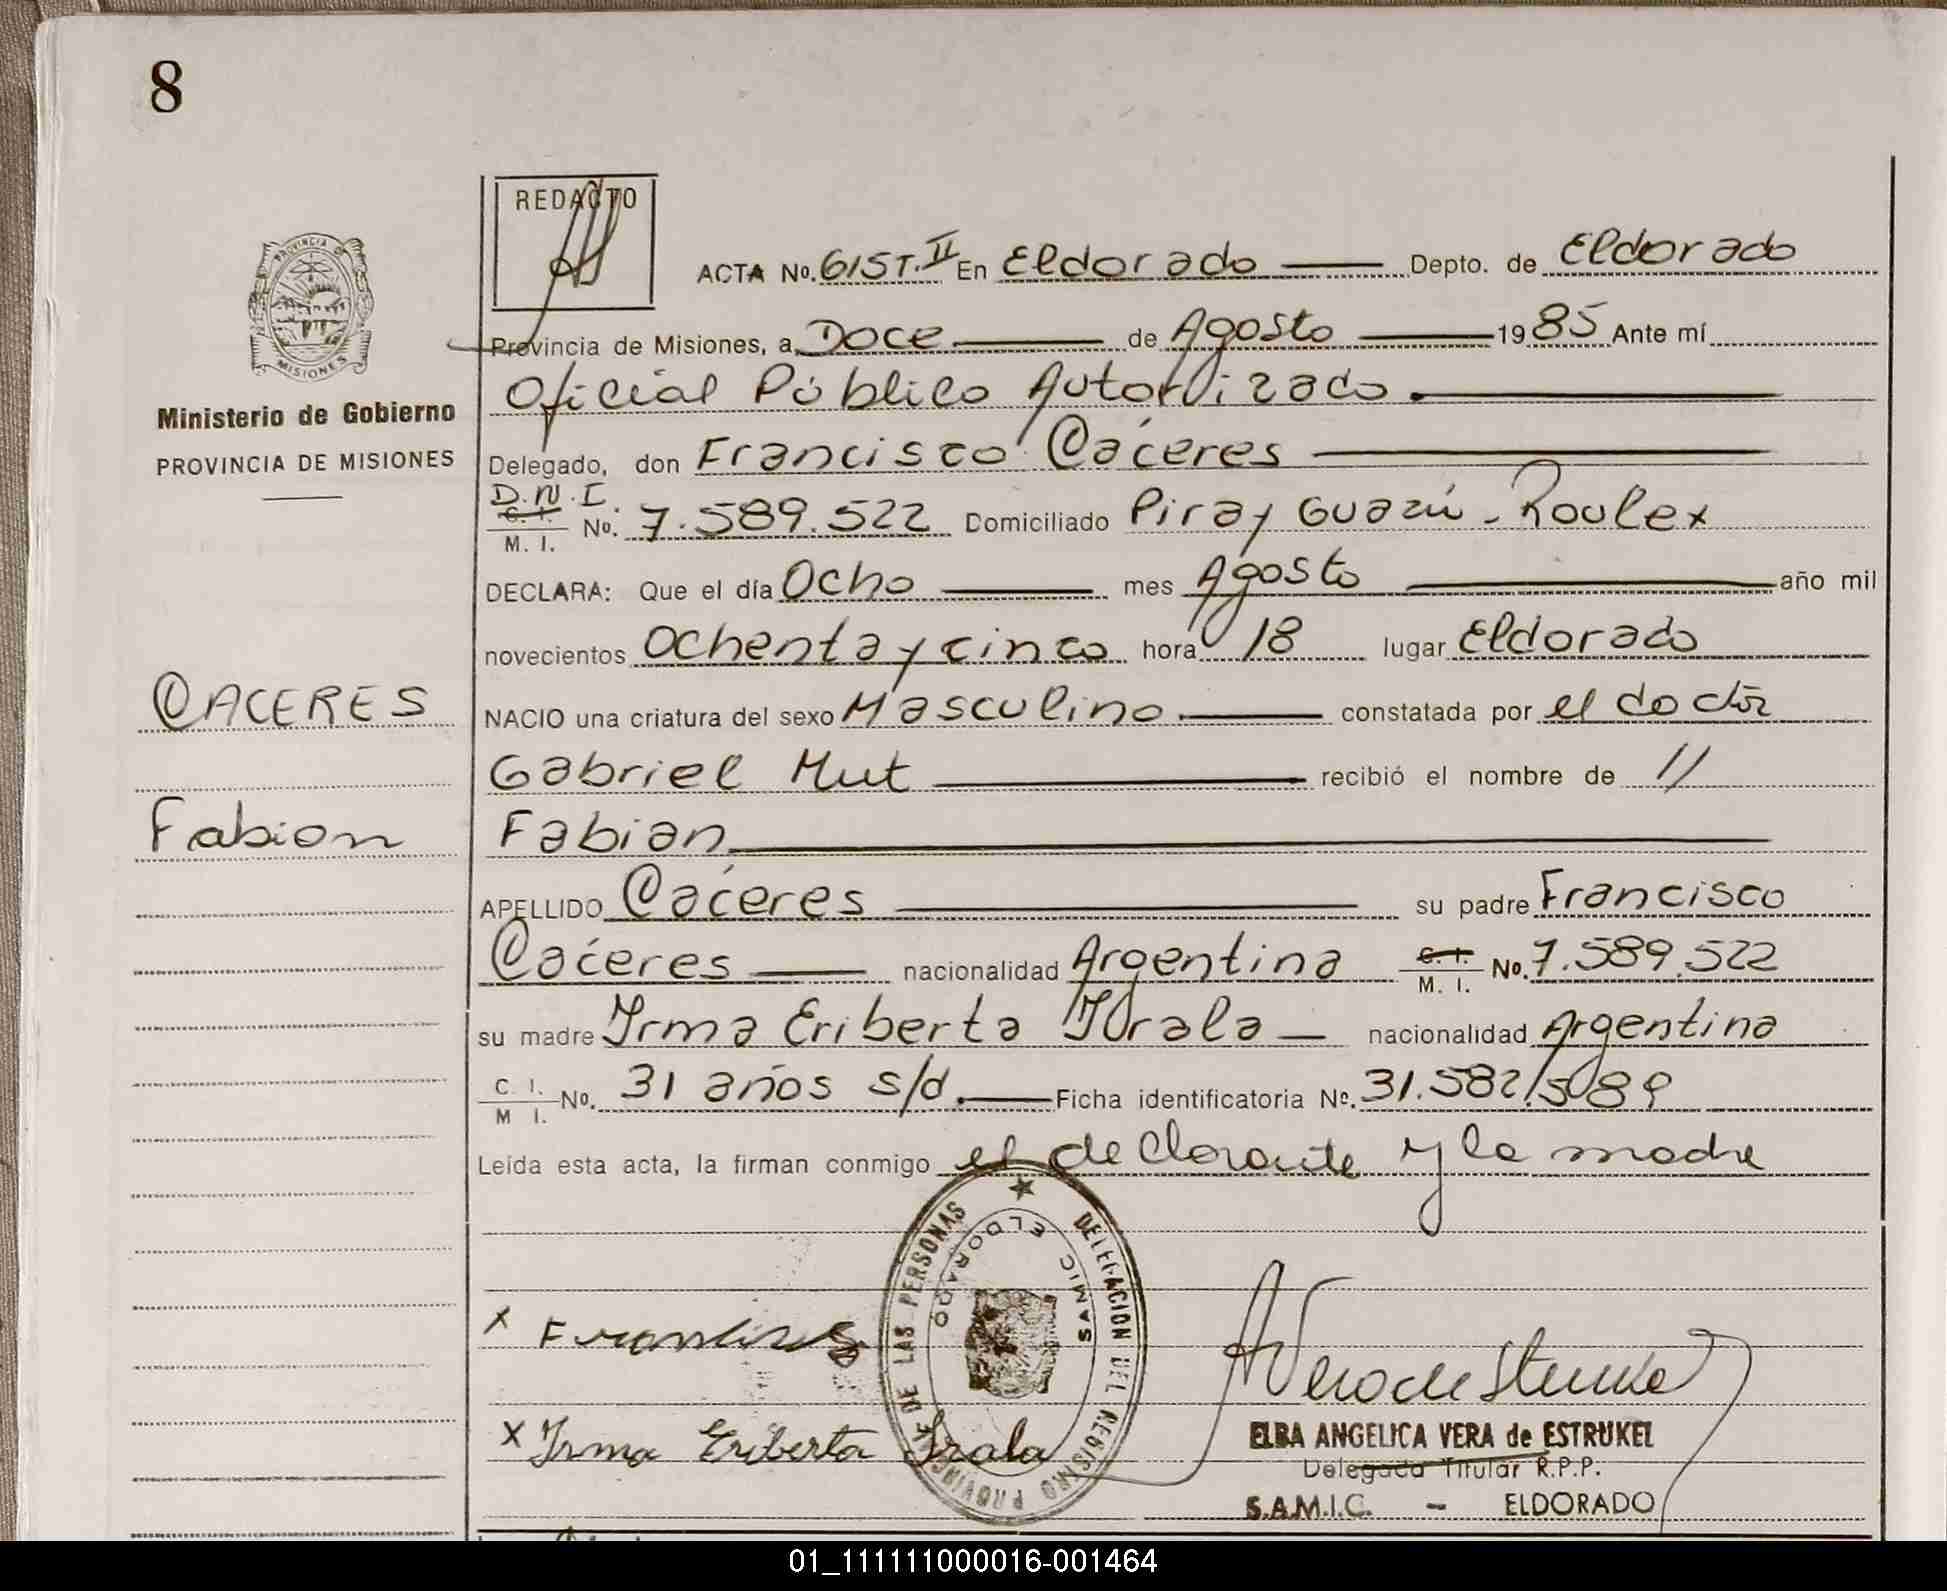 8
REDACTO
PROVINCIA DE MISIONES
ACTA No. 615 T. II En Eldorado Depto. de Eldorado
Provincia de Misiones, a Doce de Agosto 1985 Ante mí
Oficial Público Autorizado.
Ministerio de Gobierno
PROVINCIA DE MISIONES
Delegado, don Francisco Cáceres
D.N.I.
C. I. M. I. No. 7.589.522 Domiciliado Piray Guazú - Roulex
DECLARA: Que el día Ocho mes Agosto año mil
novecientos Ochenta y cinco hora 18 lugar Eldorado
CACERES
NACIO una criatura del sexo Masculino constatada por el doctor
Gabriel Mut recibió el nombre de //
Fabian
Fabian
APELLIDO Cáceres su padre Francisco
Cáceres nacionalidad Argentina C. I. M. I. No. 7.589.522
su madre Irma Eriberta Irala nacionalidad Argentina
C. I. M I. No. 31 años s/d. Ficha identificatoria No. 31.582/5089
Leída esta acta, la firman conmigo el declarante y la madre
DELEGACION DEL REGISTRO PROVINCIAL DE LAS PERSONAS
SAMIC ELDORADO
x
x Irma Eriberta Irala
ELBA ANGELICA VERA de ESTRUKEL
Delegada Titular R.P.P.
S.A.M.I.C. - ELDORADO
01_111111000016-001464